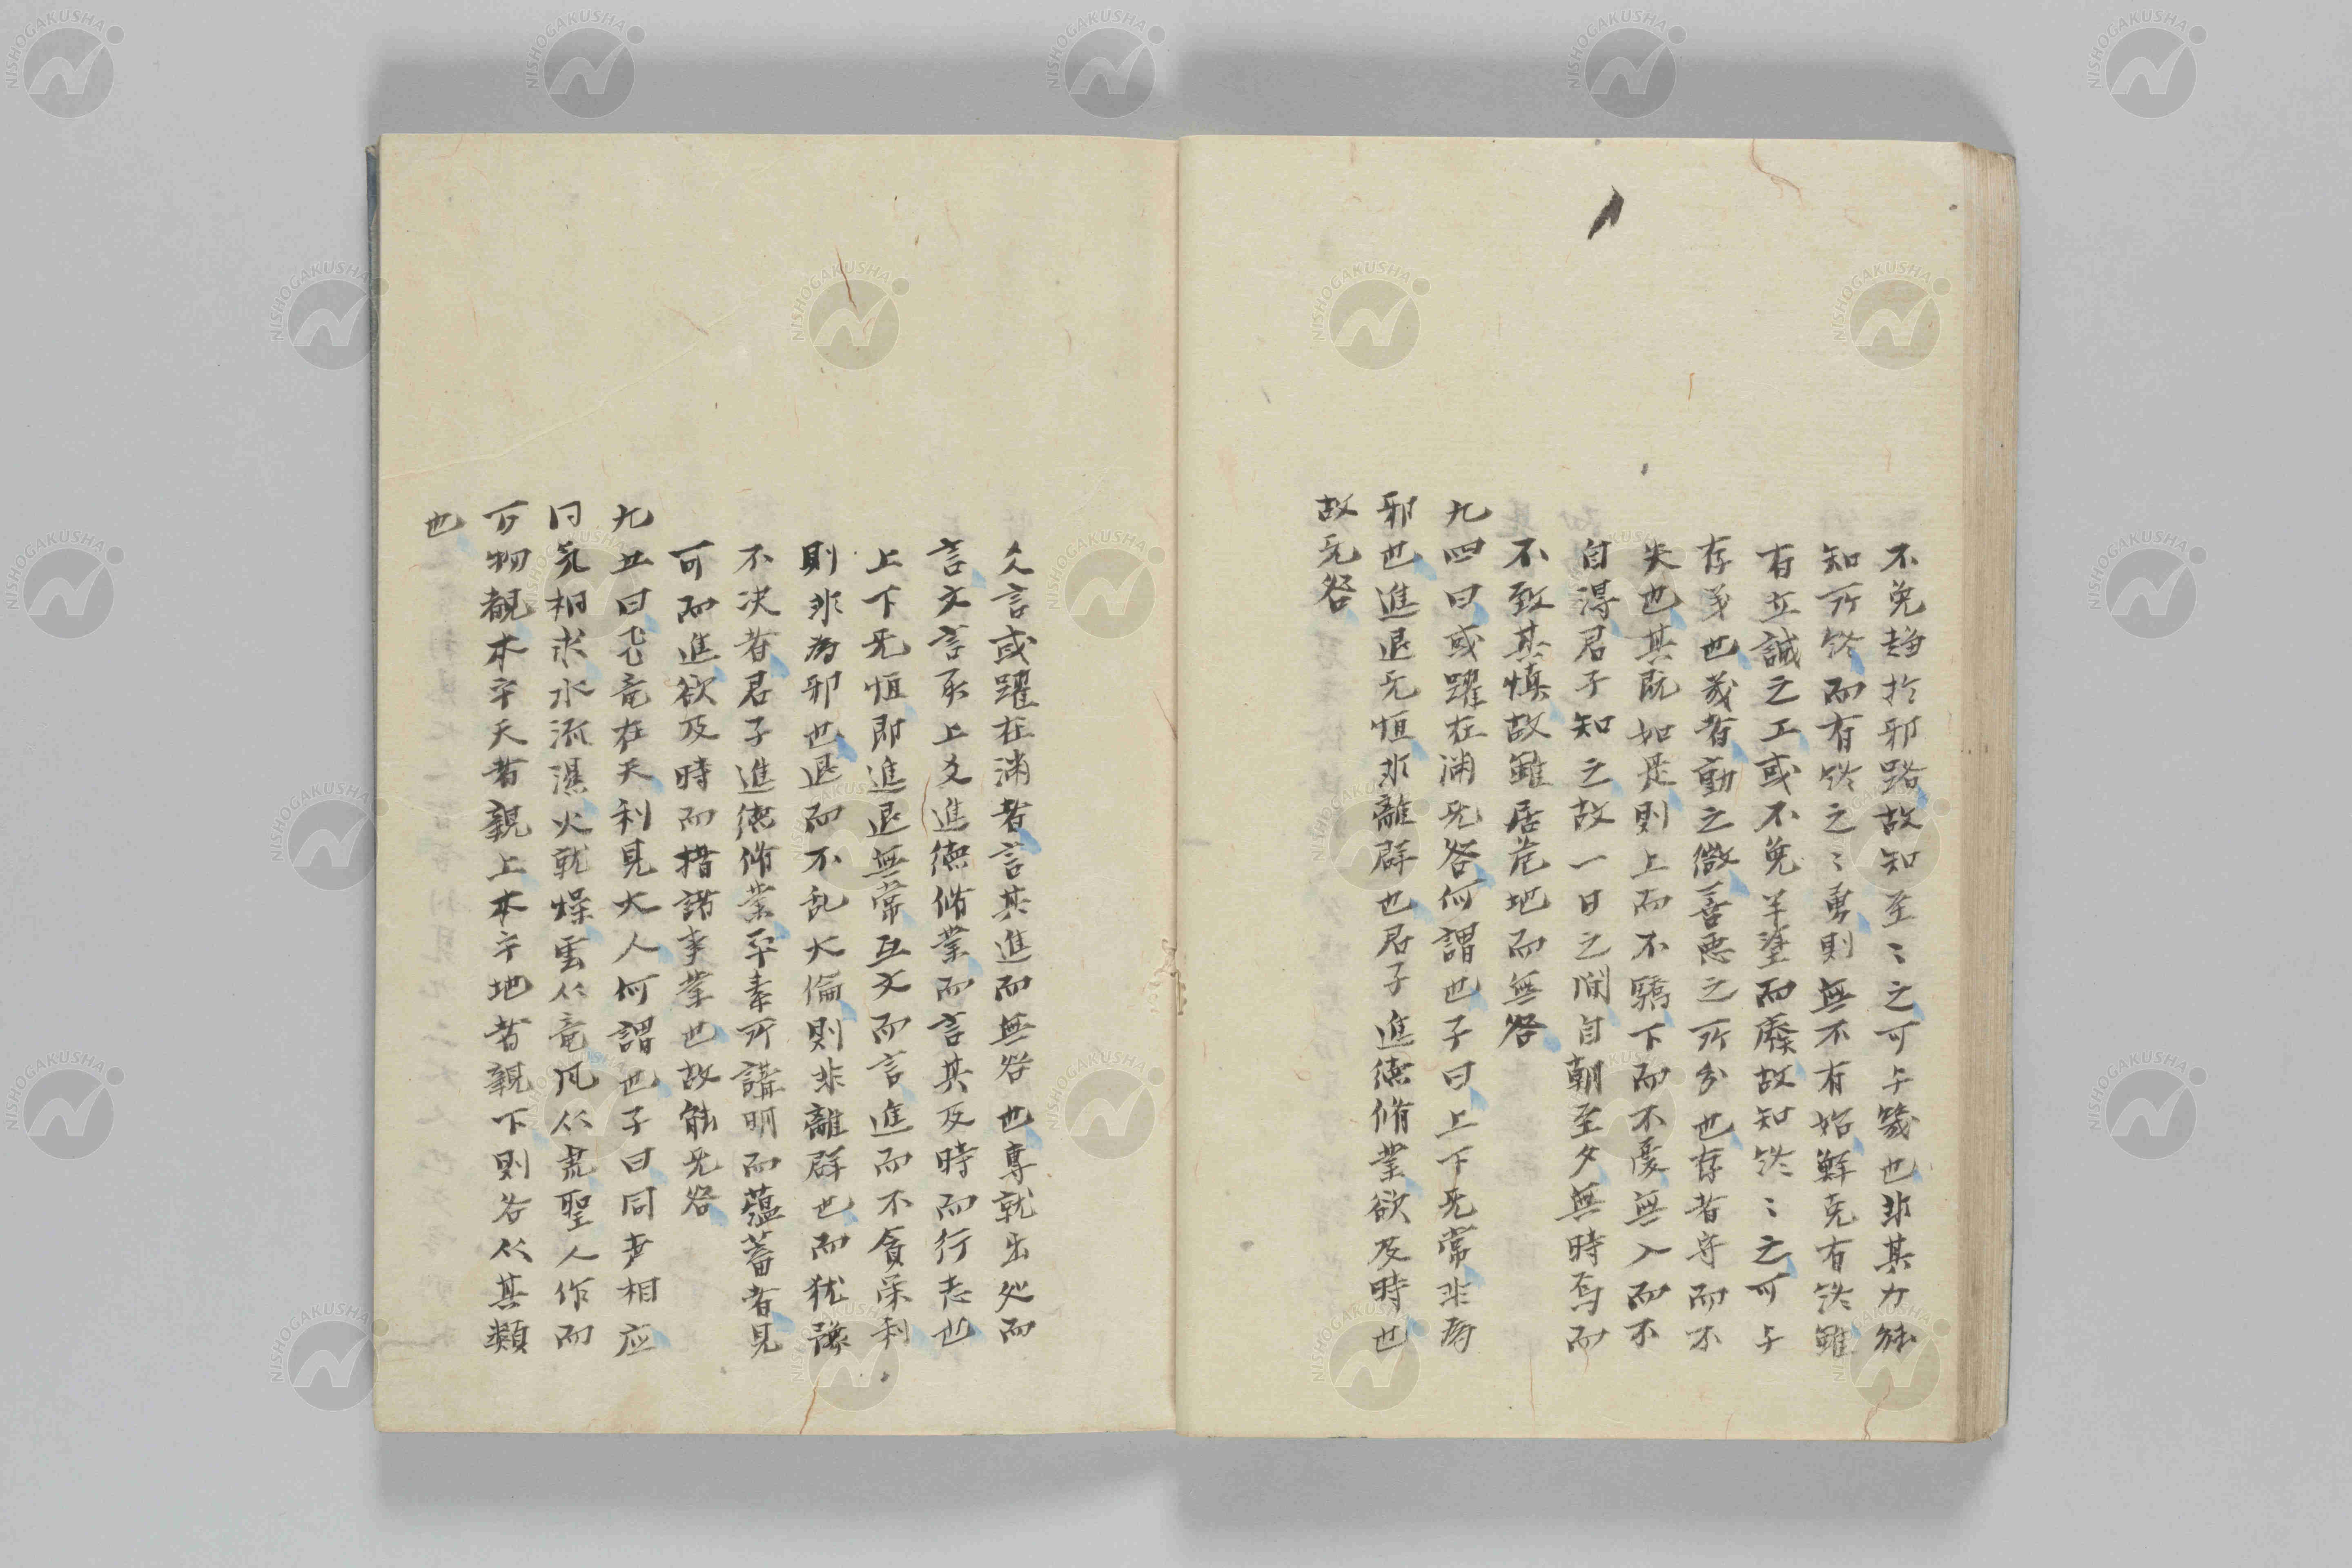 不免趨於邪路故知至〻之可与幾也非其力能
知所終而有終之〻勇則無不有始鮮克有終雖
有立誠之工或不免半塗而廢故知終〻之可与
存義也幾者動之微善悪之所分也存者守而不
失也其既如是則上而不驕下而不憂無入而不
自得君子知之故一日之間自朝至夕無時焉而
不致其慎故雖居危地而無咎
九四曰或躍在淵无咎何謂也子曰上下无常非為
邪也進退无恒非離群也君子進徳脩業欲及時也
故无咎
爻言或躍在淵者言其進而無咎也專就出処而
言文言承上爻進徳脩業而言其及時而行志也
上下无恒即進退無常互文而言進而不貪栄利
則非為邪也退而不乱大倫則非離群也而猶豫
不决者君子進徳脩業平素所講明而蘊蓄者見
可而進欲及時而措諸事業也故能无咎
九五曰飛竜在天利見大人何謂也子曰同声相应
同気相求水流濕火就燥雲从竜风从虎聖人作而
万物覩本乎天者親上本乎地者親下則各从其類
也
NISHOGAKUSHA